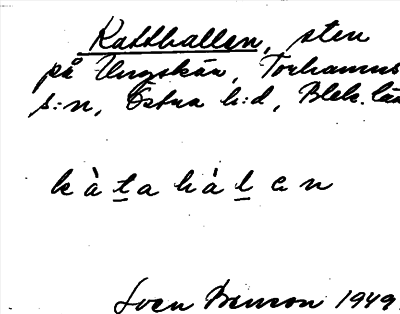 Katthallen, sten
på Ungskär, Torhamns
s:n, Östra h:d, Blek. län
kàt̲ahàl̲en
Sven Benson 1949